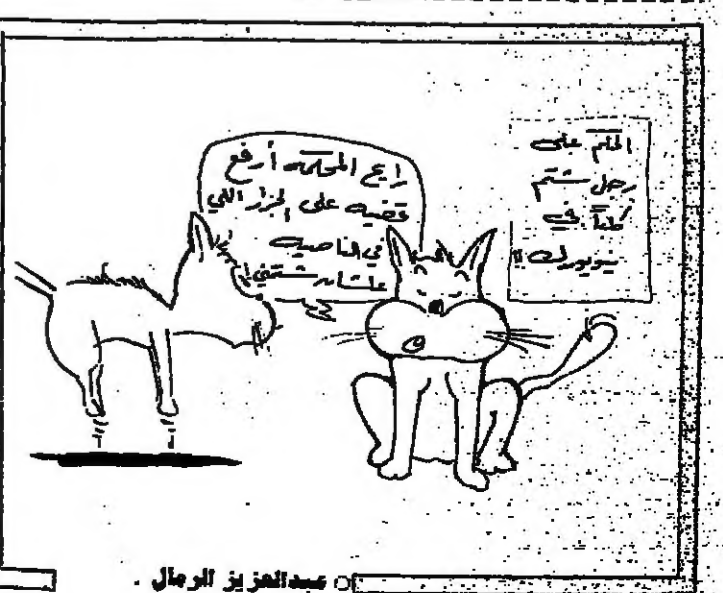 الحكم على
رجل شتم
كلباً في
نيويورك !!
رايح المحكمه أرفع
قضيه على الجزار اللي
في الناصيه
علشان شتمني !
○ عبدالعزيز الرمال .